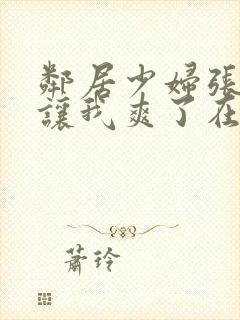 鄰居少婦張
讓我爽了在
蕭玲